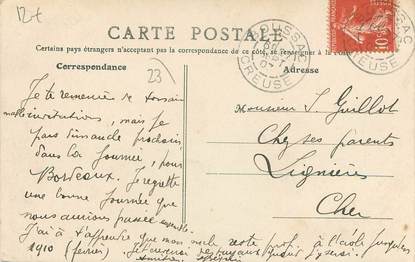 12-t
CARTE POSTALE
Certains pays étrangers n'acceptant pas la correspondance de ce côté, se renseigner à la Poste
BOUSSAC
CREUSE
10
Correspondance
23
Adresse
Je te remercie de ton
invitations, mais je
pars dimanche prochain
dans la Journée, pour
Bordeaux. Je regrette
une bonne Journée que
nous aurions passée
J'ai à t'apprendre que mon reste prof. à l'école jusqu'en
1910 (février)
Monsieur J. Guillot
Chez ses parents
Lignières
Cher